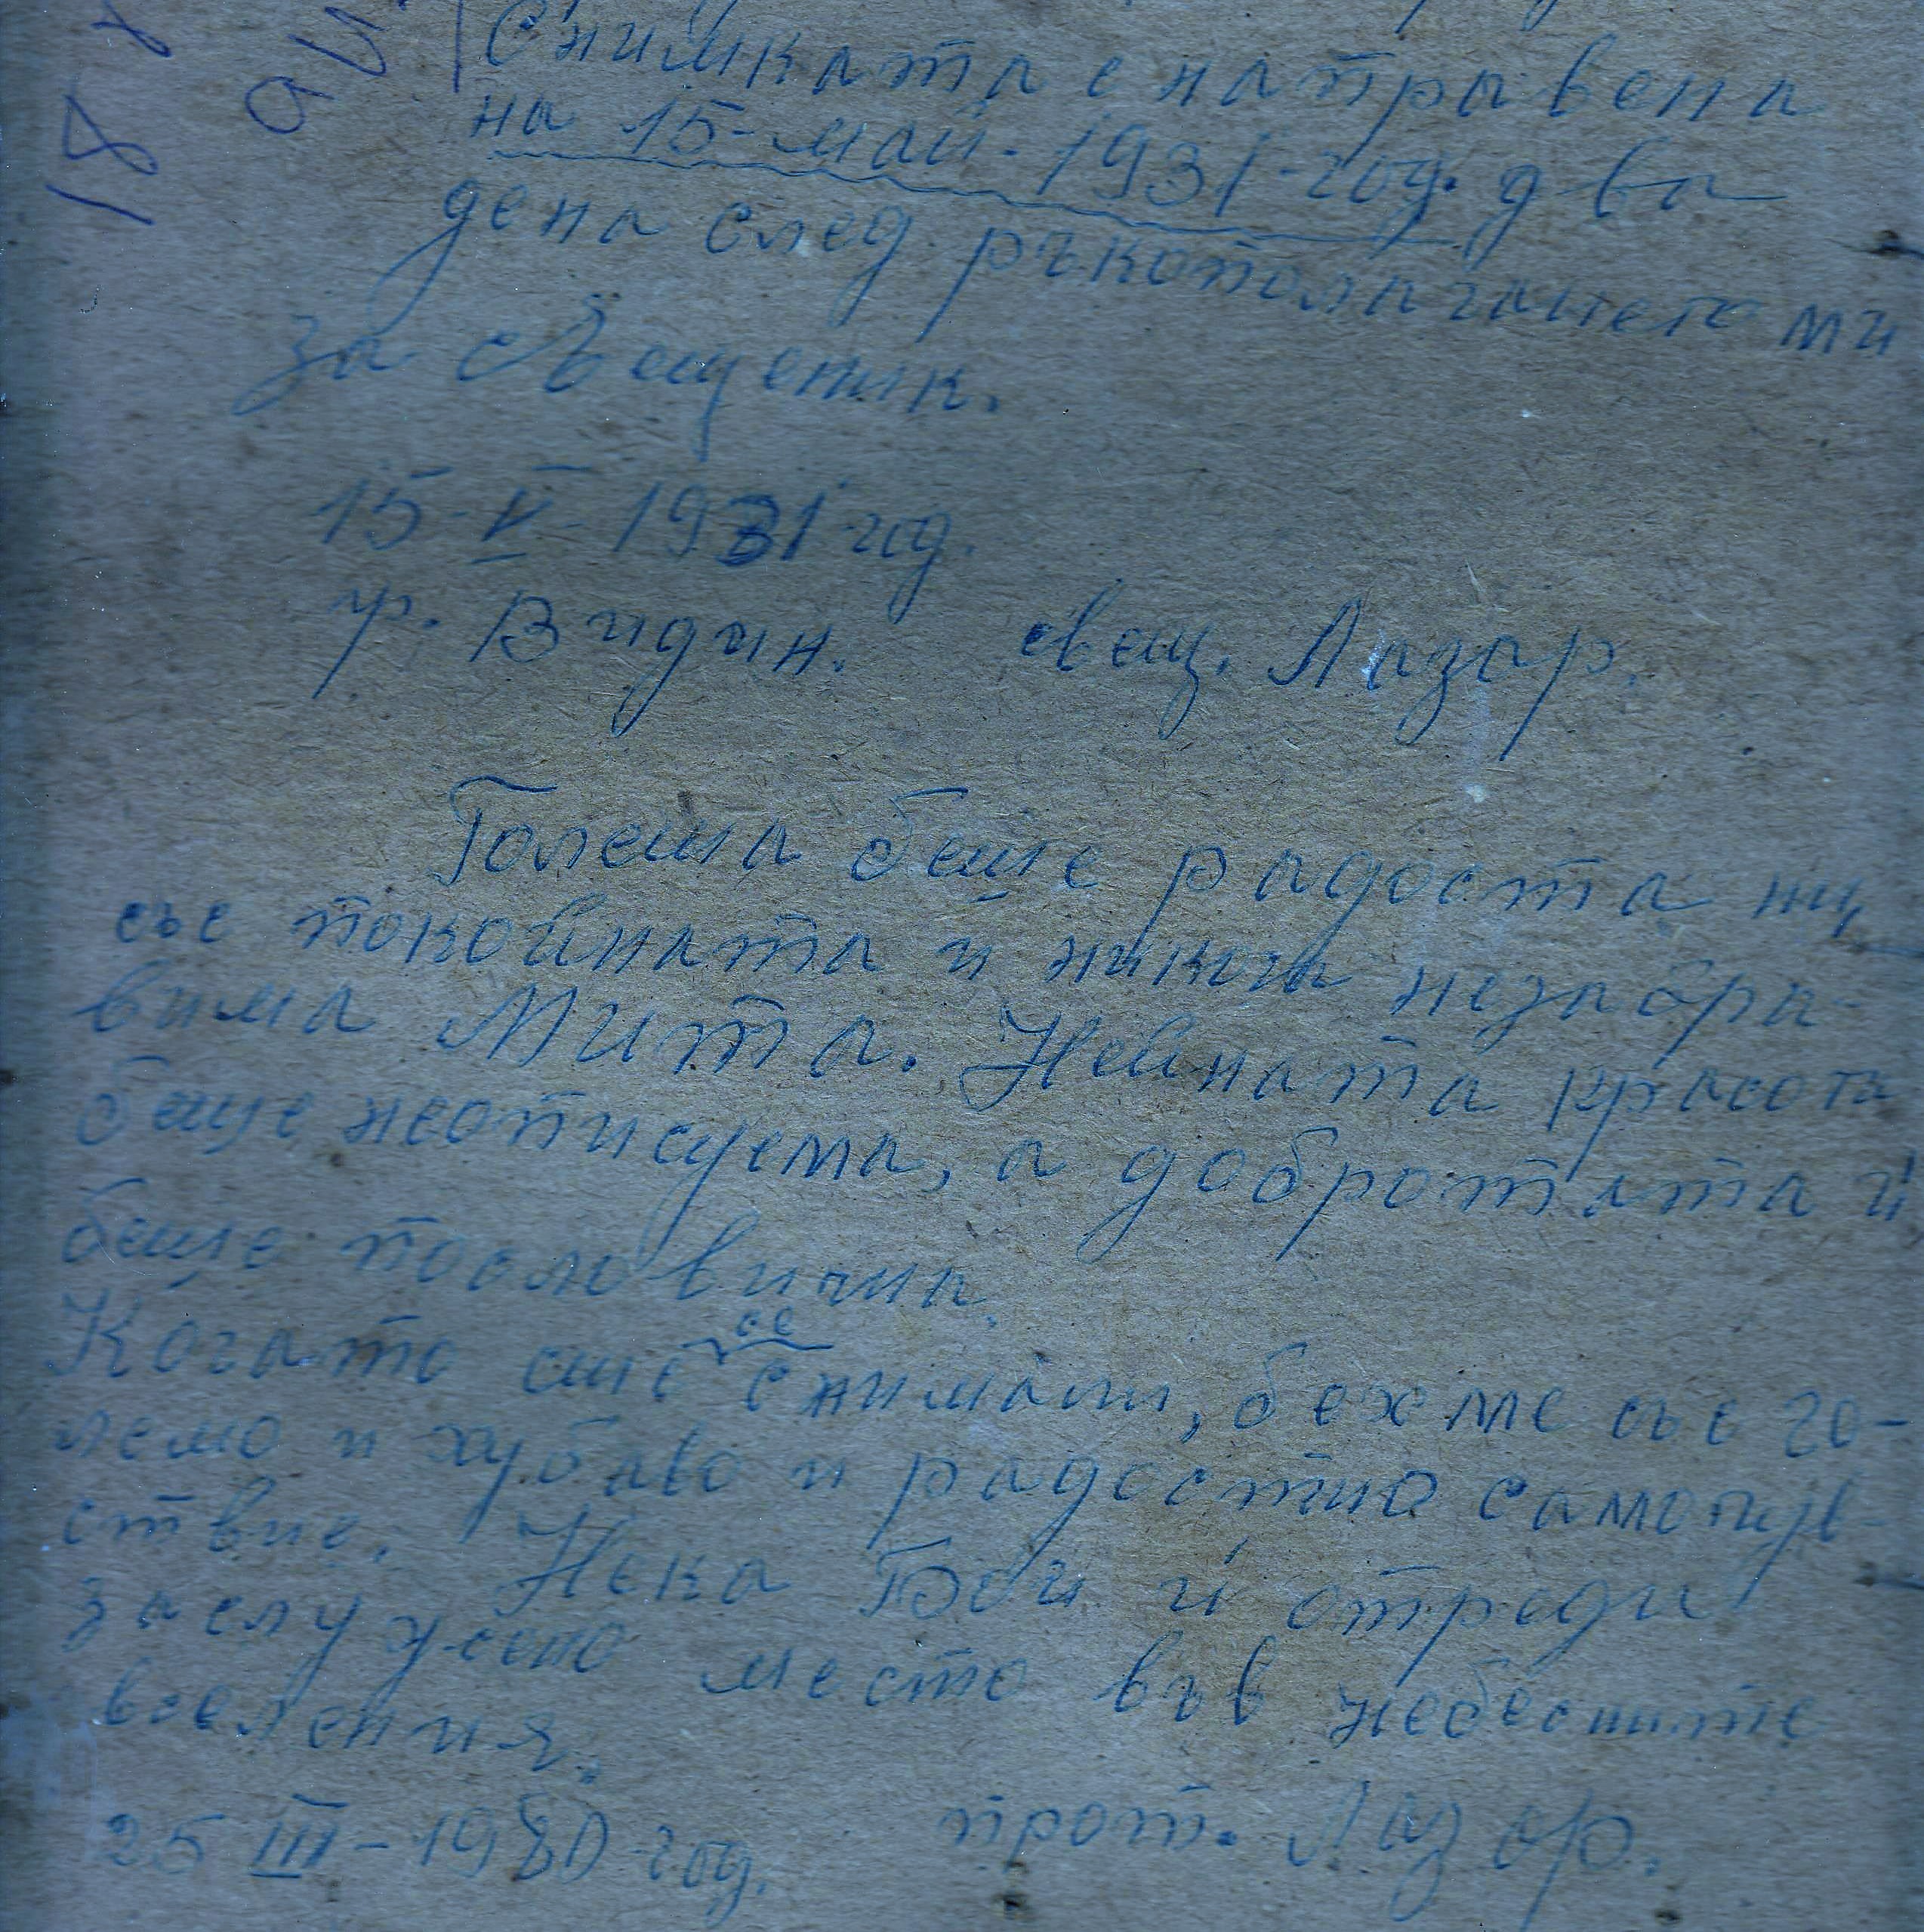 18
Снимката е направена
на 15-май-1931-год. два
дена след ръкополагането ми
за свещеник.
15-V-1931 год.
гр. Видин. свещ. Лазар.
Голема беше радоста ни,
със покойната и никога незабра-
вима Мита. Нейната красота
беше неописуема, а добротата и
беше пословична.
Когато сме се снимали, бехме със го-
лемо и хубаво и радостно самочув-
ствие. Нека Бог и отреди
заслужено место във небесните
вселения.
25 III-1980 год. прот. Лазар.